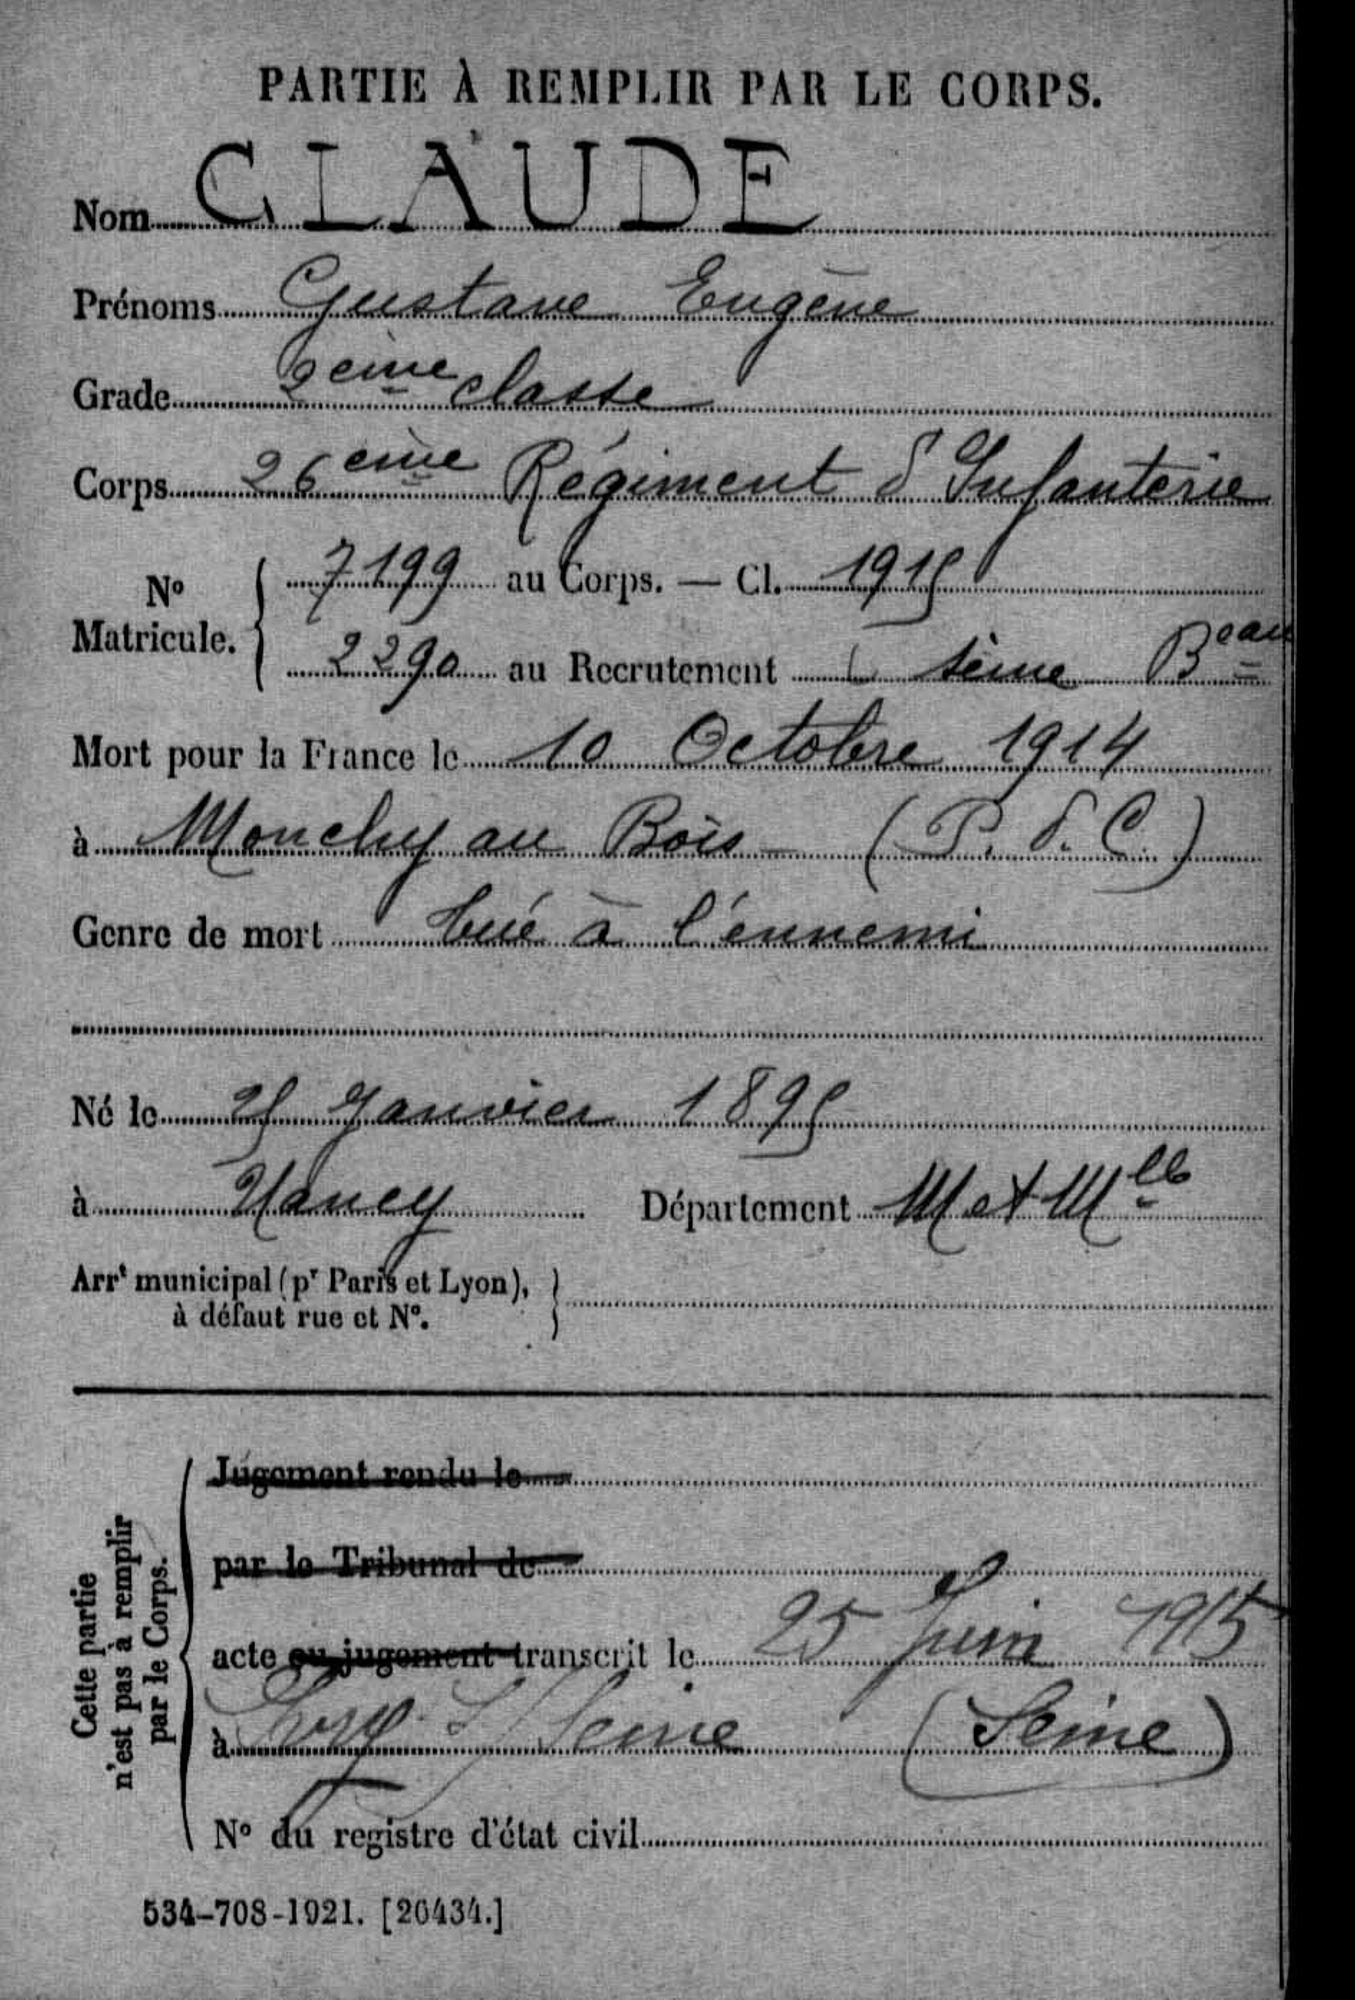 PARTIE À REMPLIR PAR LE CORPS.
Nom CLAUDE
Prénoms Gustave Eugène
Grade 2ème classe
Corps 26ème Régiment d'Infanterie
No Matricule. { 7199 au Corps. — Cl. 1915
2290 au Recrutement Seine Beau
Mort pour la France le 10 Octobre 1914
à Monchy au Bois - (P. d. C.)
Genre de mort tué à l'ennemi
Né le 25 Janvier 1895
à Nancy Département M et Mlle
Arrt municipal (pr Paris et Lyon),
à défaut rue et No.
Cette partie
n'est pas à remplir
par le Corps.
Jugement rendu le
par le Tribunal de
acte ou jugement transcrit le 25 Juin 1915
à Ivry s/ Seine (Seine)
No du registre d'état civil
534-708-1921. [26434.]